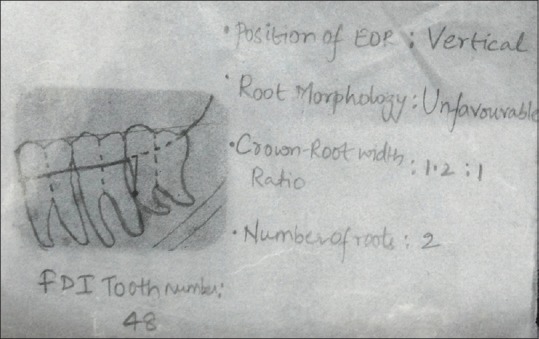 • Position of EOR : Vertical
• Root Morphology : Unfavourable
• Crown-Root width : 1.2 : 1
Ratio
• Number of roots : 2
FDI Tooth number:
48